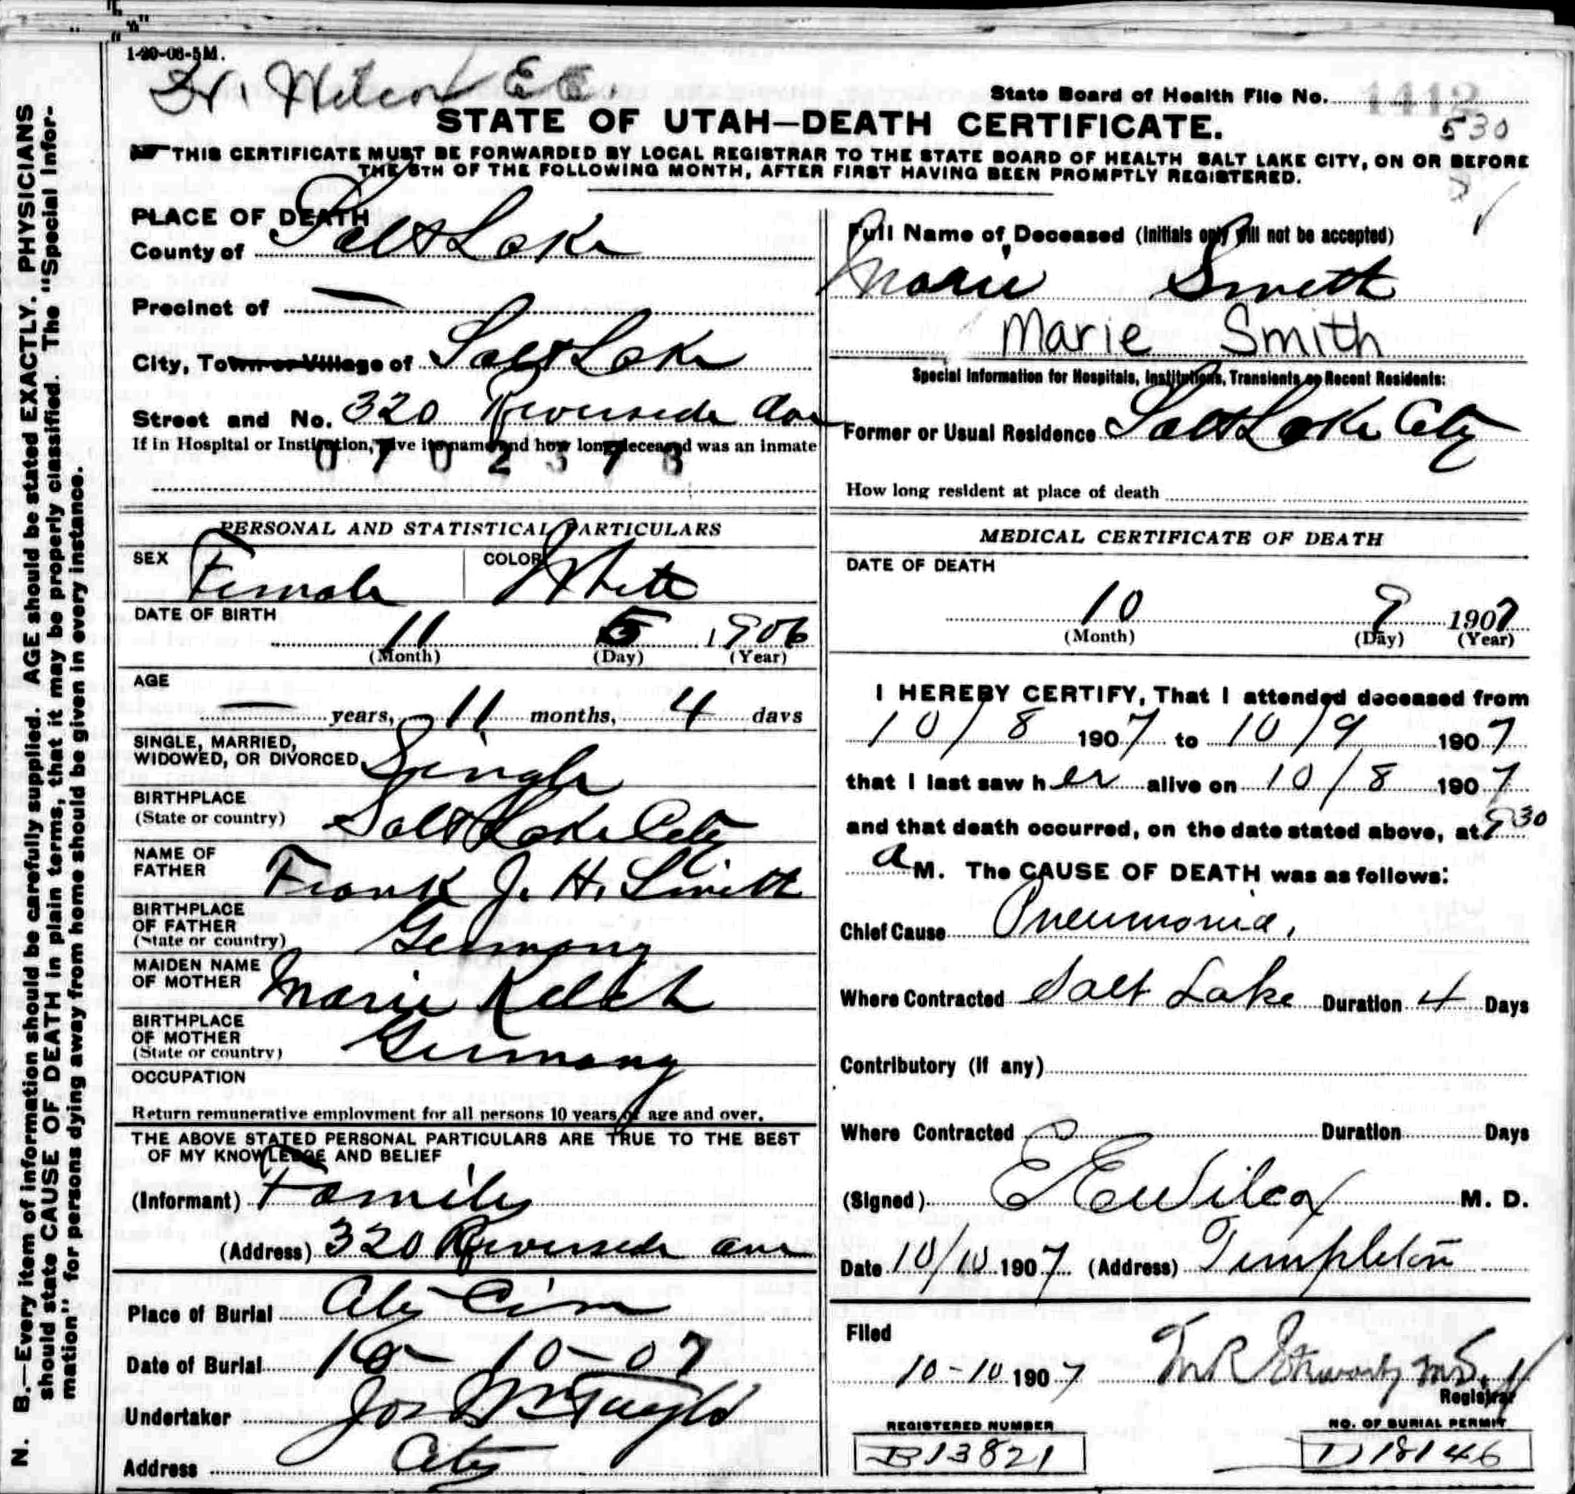 1-20-08-5M.
Dr. Wilcox E E.
State Board of Health File No. 1412
530
STATE OF UTAH—DEATH CERTIFICATE.
THIS CERTIFICATE MUST BE FORWARDED BY LOCAL REGISTRAR TO THE STATE BOARD OF HEALTH SALT LAKE CITY, ON OR BEFORE
THE 5TH OF THE FOLLOWING MONTH, AFTER FIRST HAVING BEEN PROMPTLY REGISTERED.
N. B.—Every item of information should be carefully supplied. AGE should be stated EXACTLY. PHYSICIANS
should state CAUSE OF DEATH in plain terms, that it may be properly classified. The "Special Infor-
mation" for persons dying away from home should be given in every instance.
PLACE OF DEATH
County of Salt Lake
Precinct of —
City, Town or Village of Salt Lake
Street and No. 320 Riverside Ave
If in Hospital or Institution, give its name and how long deceased was an inmate
0702378
PERSONAL AND STATISTICAL PARTICULARS
SEX Female COLOR White
DATE OF BIRTH
11 5 1906
(Month) (Day) (Year)
AGE
years, 11 months, 4 days
SINGLE, MARRIED,
WIDOWED, OR DIVORCED Single
BIRTHPLACE
(State or country) Salt Lake City
NAME OF
FATHER Frank J. H. Smith
BIRTHPLACE
OF FATHER
(State or country) Germany
MAIDEN NAME
OF MOTHER Marie Kelch
BIRTHPLACE
OF MOTHER
(State or country) Germany
OCCUPATION
Return remunerative employment for all persons 10 years of age and over.
THE ABOVE STATED PERSONAL PARTICULARS ARE TRUE TO THE BEST
OF MY KNOWLEDGE AND BELIEF
(Informant) Family
(Address) 320 Riverside ave
Place of Burial City Cem
Date of Burial 10-10-07
Undertaker Jos Wm Taylor
Address City
Full Name of Deceased (Initials only will not be accepted)
Marie Smith
Marie Smith
Special Information for Hospitals, Institutions, Transients or Recent Residents:
Former or Usual Residence Salt Lake City
How long resident at place of death
MEDICAL CERTIFICATE OF DEATH
DATE OF DEATH
10 9 1907
(Month) (Day) (Year)
I HEREBY CERTIFY, That I attended deceased from
10/8 1907 to 10/9 1907
that I last saw her alive on 10/8 1907
and that death occurred, on the date stated above, at 9 30
a M. The CAUSE OF DEATH was as follows:
Chief Cause Pneumonia.
Where Contracted Salt Lake Duration 4 Days
Contributory (if any)
Where Contracted Duration Days
(Signed) E E Wilcox M. D.
Date 10/10 1907 (Address) Templeton
Filed
10-10 1907 M R Stewart M.D.
Registrar
REGISTERED NUMBER
B13821
NO. OF BURIAL PERMIT
D18146